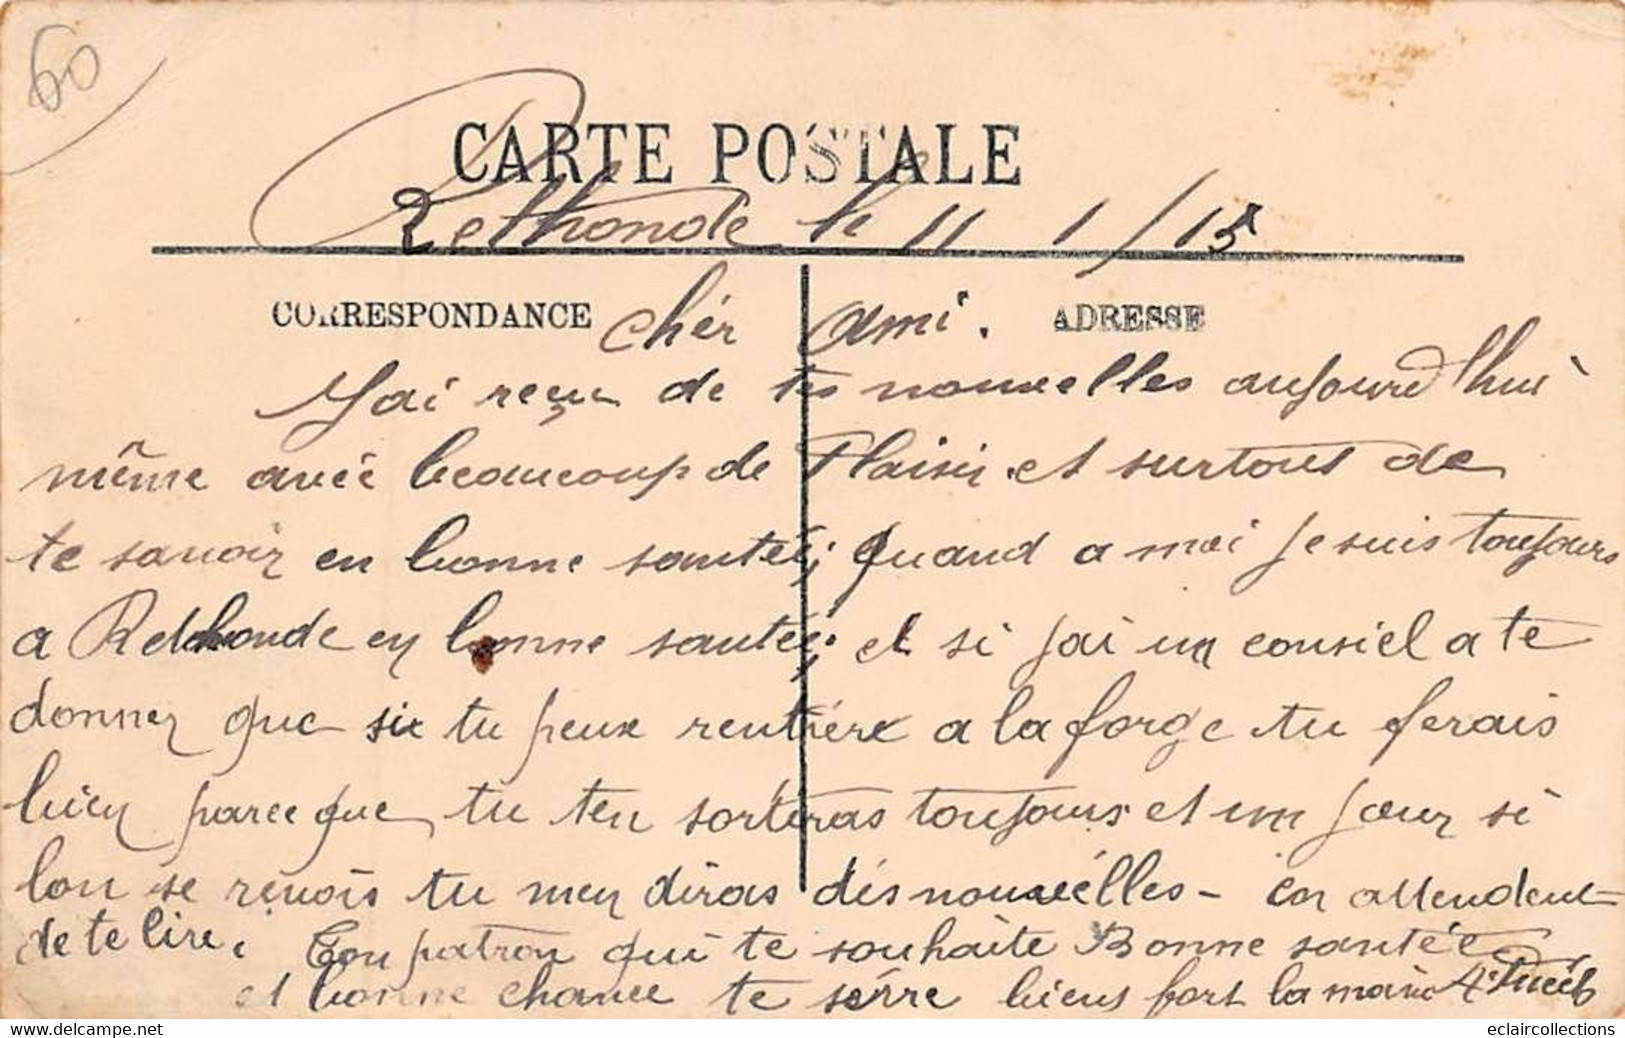 60
CARTE POSTALE
Rethonde le 11 1/15
CORRESPONDANCE
ADRESSE
chér ami.
J'ai reçu de tes nouvelles aujourd'hui
même avéc beaucoup de Plaisir. et surtout de
te savoir en bonne santée; quand a moi je suis toujours
a Rethonde en bonne santée; et si j'ai un consiel a te
donner que si tu peux rentrére a la forge tu ferais
bien parce que tu ten sortiras toujours et un jour si
lon se revois tu men diras dés nouvéelles - en attendent
de te lire. Ton patron qui te souhaite Bonne santée
et bonne chance te sérre biens fort la main
delcampe.net
eclaircollections